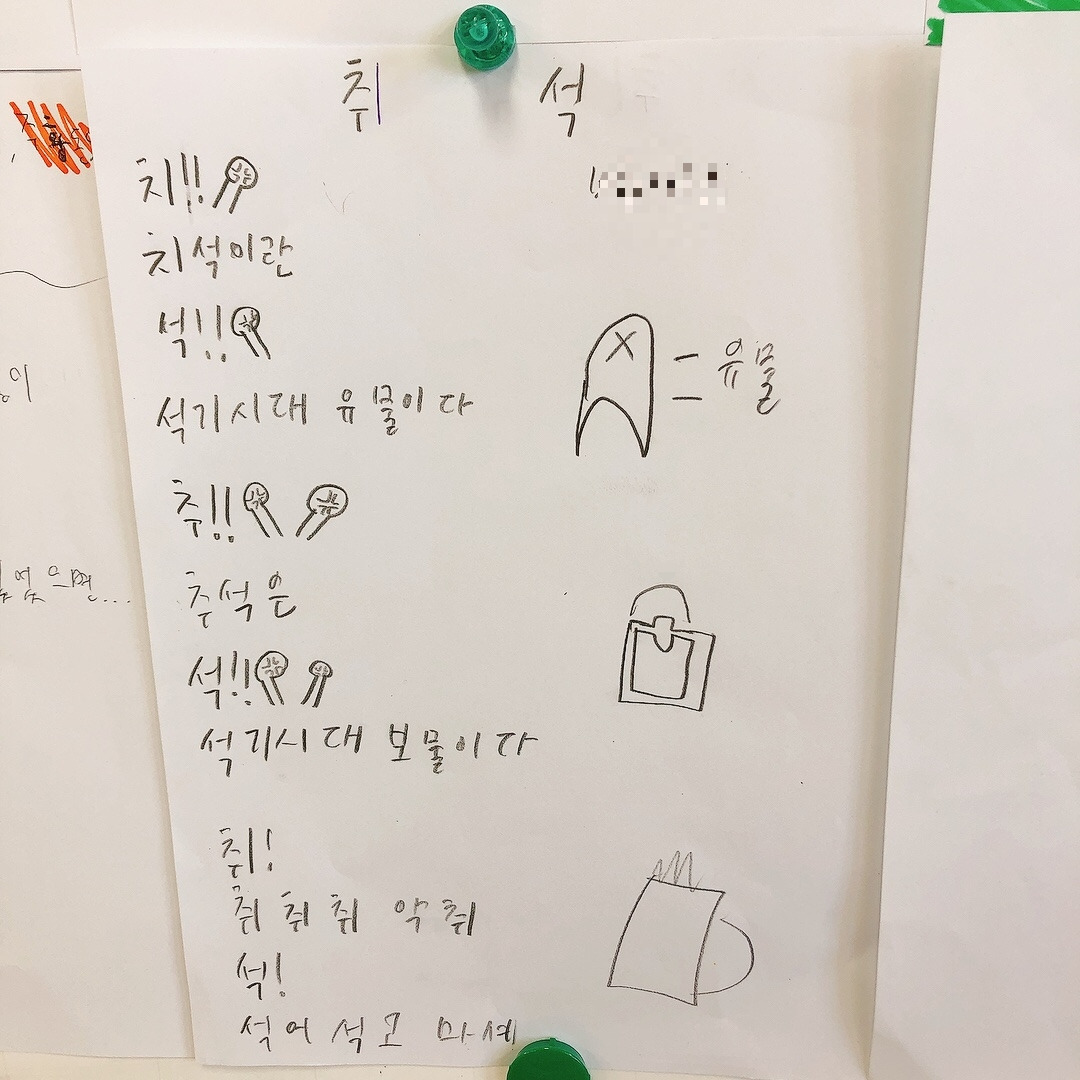 취 석
치!!
치석이란
석!!
석기시대 유물이다
= 유물
추!!
추석은
석!!
석기시대 보물이다
취!
취 취 취 악취
석!
석어 석고 마셔